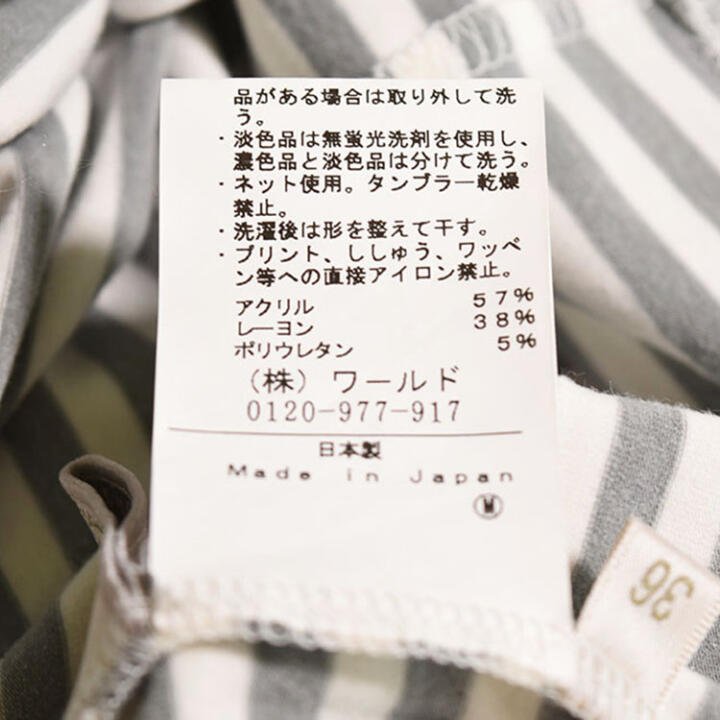 品がある場合は取り外して洗
う。
・淡色品は無蛍光洗剤を使用し、
濃色品と淡色品は分けて洗う。
・ネット使用。タンブラー乾燥
禁止。
・洗濯後は形を整えて干す。
・プリント、ししゅう、ワッペ
ン等への直接アイロン禁止。
アクリル 57%
レーヨン 38%
ポリウレタン 5%
（株）ワールド
0120-977-917
日本製
Made in Japan
M
36